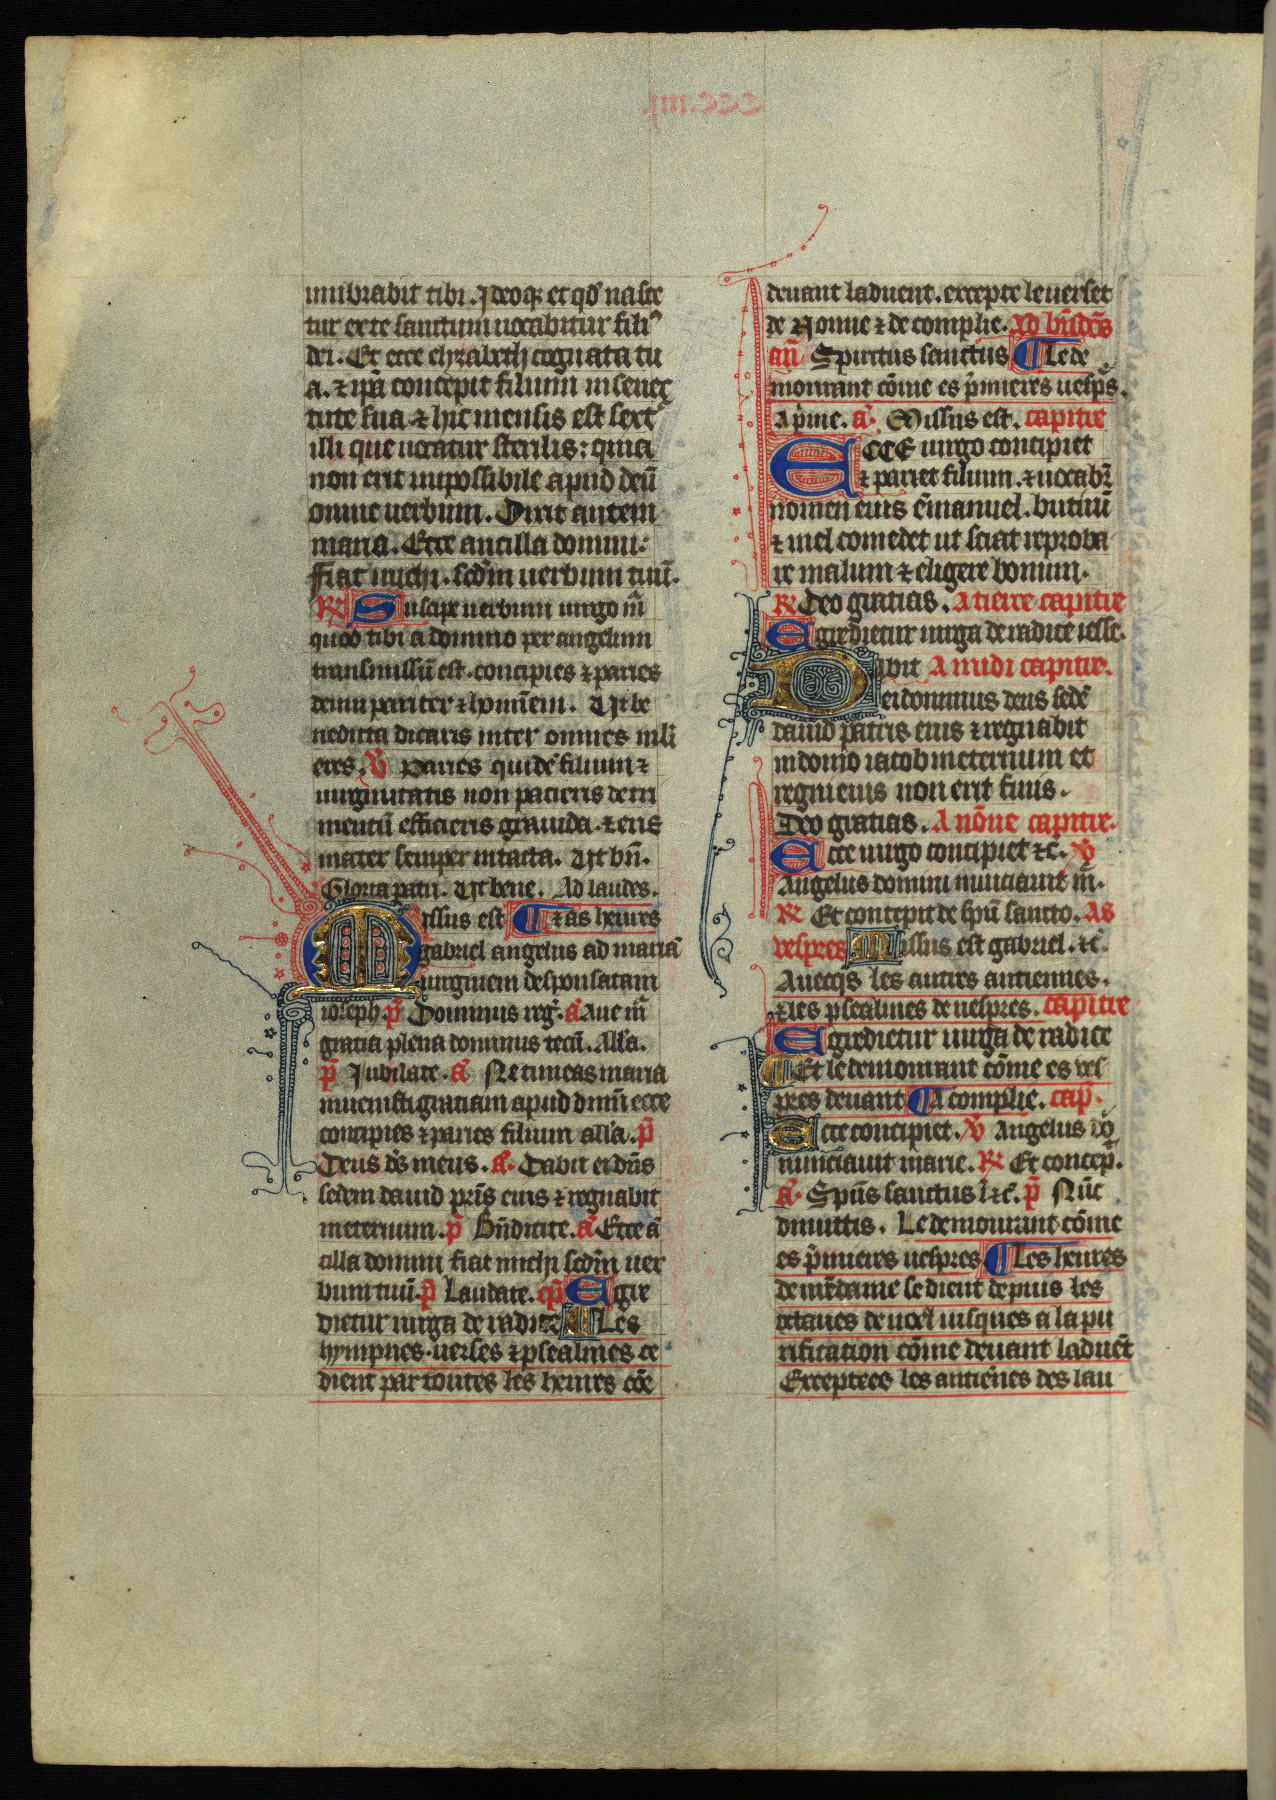 umbrabit tibi. Ideoq; et qd̄ nasce
tur ex te sanctum uocabitur fili⁹
dei. Et ecce elyzabeth cognata tu
a. ⁊ ip̄a concepit filium in senec
tute sua. ⁊ hic mensis est sext⁹
illi que uocatur sterilis: quia
non erit impossibile apud deū
omne uerbum. Dixit autem
maria. Ecce ancilla domini:
fiat michi. scd̄m uerbum tuū.
℟ Suscipe uerbum uirgo m̄
quod tibi a domino per angelum
transmissū est. concipies ⁊ paries
deum pariter ⁊ hominem. Ut be
nedicta dicaris inter omnes muli
eres. ℣ Paries quidē filium ⁊
uirginitatis non pacieris detri
mentū efficieris grauida. ⁊ eris
mater semper intacta. Ut bn̄.
Gloria patri. Ut bene. Ad laudes.
Missus est ¶ ⁊ as heures
gabriel angelus ad mariā
uirginem desponsatam
ioseph. p̄ Dominus reg̃. a᷑ Aue m̄
gratia plena dominus tecū. All'a.
p̄ Iubilate. a᷑ Ne timeas maria
inuenisti gratiam apud dnm̄ ecce
concipies ⁊ paries filium all'a. p̄
Deus ds̄ meus. a᷑. Dabit ei dn̄s
sedem dauid pr̄is eius ⁊ regnabit
in eternum. p̄ Bn̄dicite. a᷑ Ecce ā
cilla domini fiat michi scd̄m uer
bum tuū. p̄ Laudate. cap̄ Egre
dietur uirga de radice ¶ Les
hympnes. uerses ⁊ psealmes ce
dient par toutes les heures cōe
deuant laduent. excepte le uerset
de Nonne ⁊ de complie. Ad bn̄dc̄s
an̄ Spiritus sanctus ¶ Le de
mourant cōme es p̄mieres uesp̄s.
A p̄me. a᷑. Missus est. capitre
ECCE uirgo concipiet
⁊ pariet filium. ⁊ uocabr̄
nomen eius ēmanuel. butirū
⁊ mel comedet ut sciat reproba
re malum ⁊ eligere bonum.
℟ Deo gratias. A tierce capitre
Egredietur uirga de radice iesse.
Dabit A midi capitre.
ei dominus deus sedē
dauid patris eius ⁊ regnabit
in domo iacob in eternum et
regni eius non erit finis.
Deo gratias. A nōne capitre.
Ecce uirgo concipiet ⁊c̄. ℣
Angelus domini nunciauit m̄.
℟ Et concepit de sp̄u sancto. As
vespres Missus est gabriel. ⁊c̄.
Auecq̄s les autres antiennes.
⁊ les psealmes de uespres. capitre
Egredietur uirga de radice
¶ Et le demourant cōme es ves
pres deuant ¶ A complie. cap̄.
Ecce concipiet. ℣ Angelus dn̄i
nunciauit marie. ℟ Et concep̄.
a᷑. Sp̄us sanctus ⁊c̄. p̄ Nūc
dimittis. Le demourant cōme
es p̄mieres uespres ¶ Les heures
de nr̄e dame se dient depuis les
octaues de noel iusques a la pu
rification cōme deuant laduēt
Exceptees les antiēnes des lau